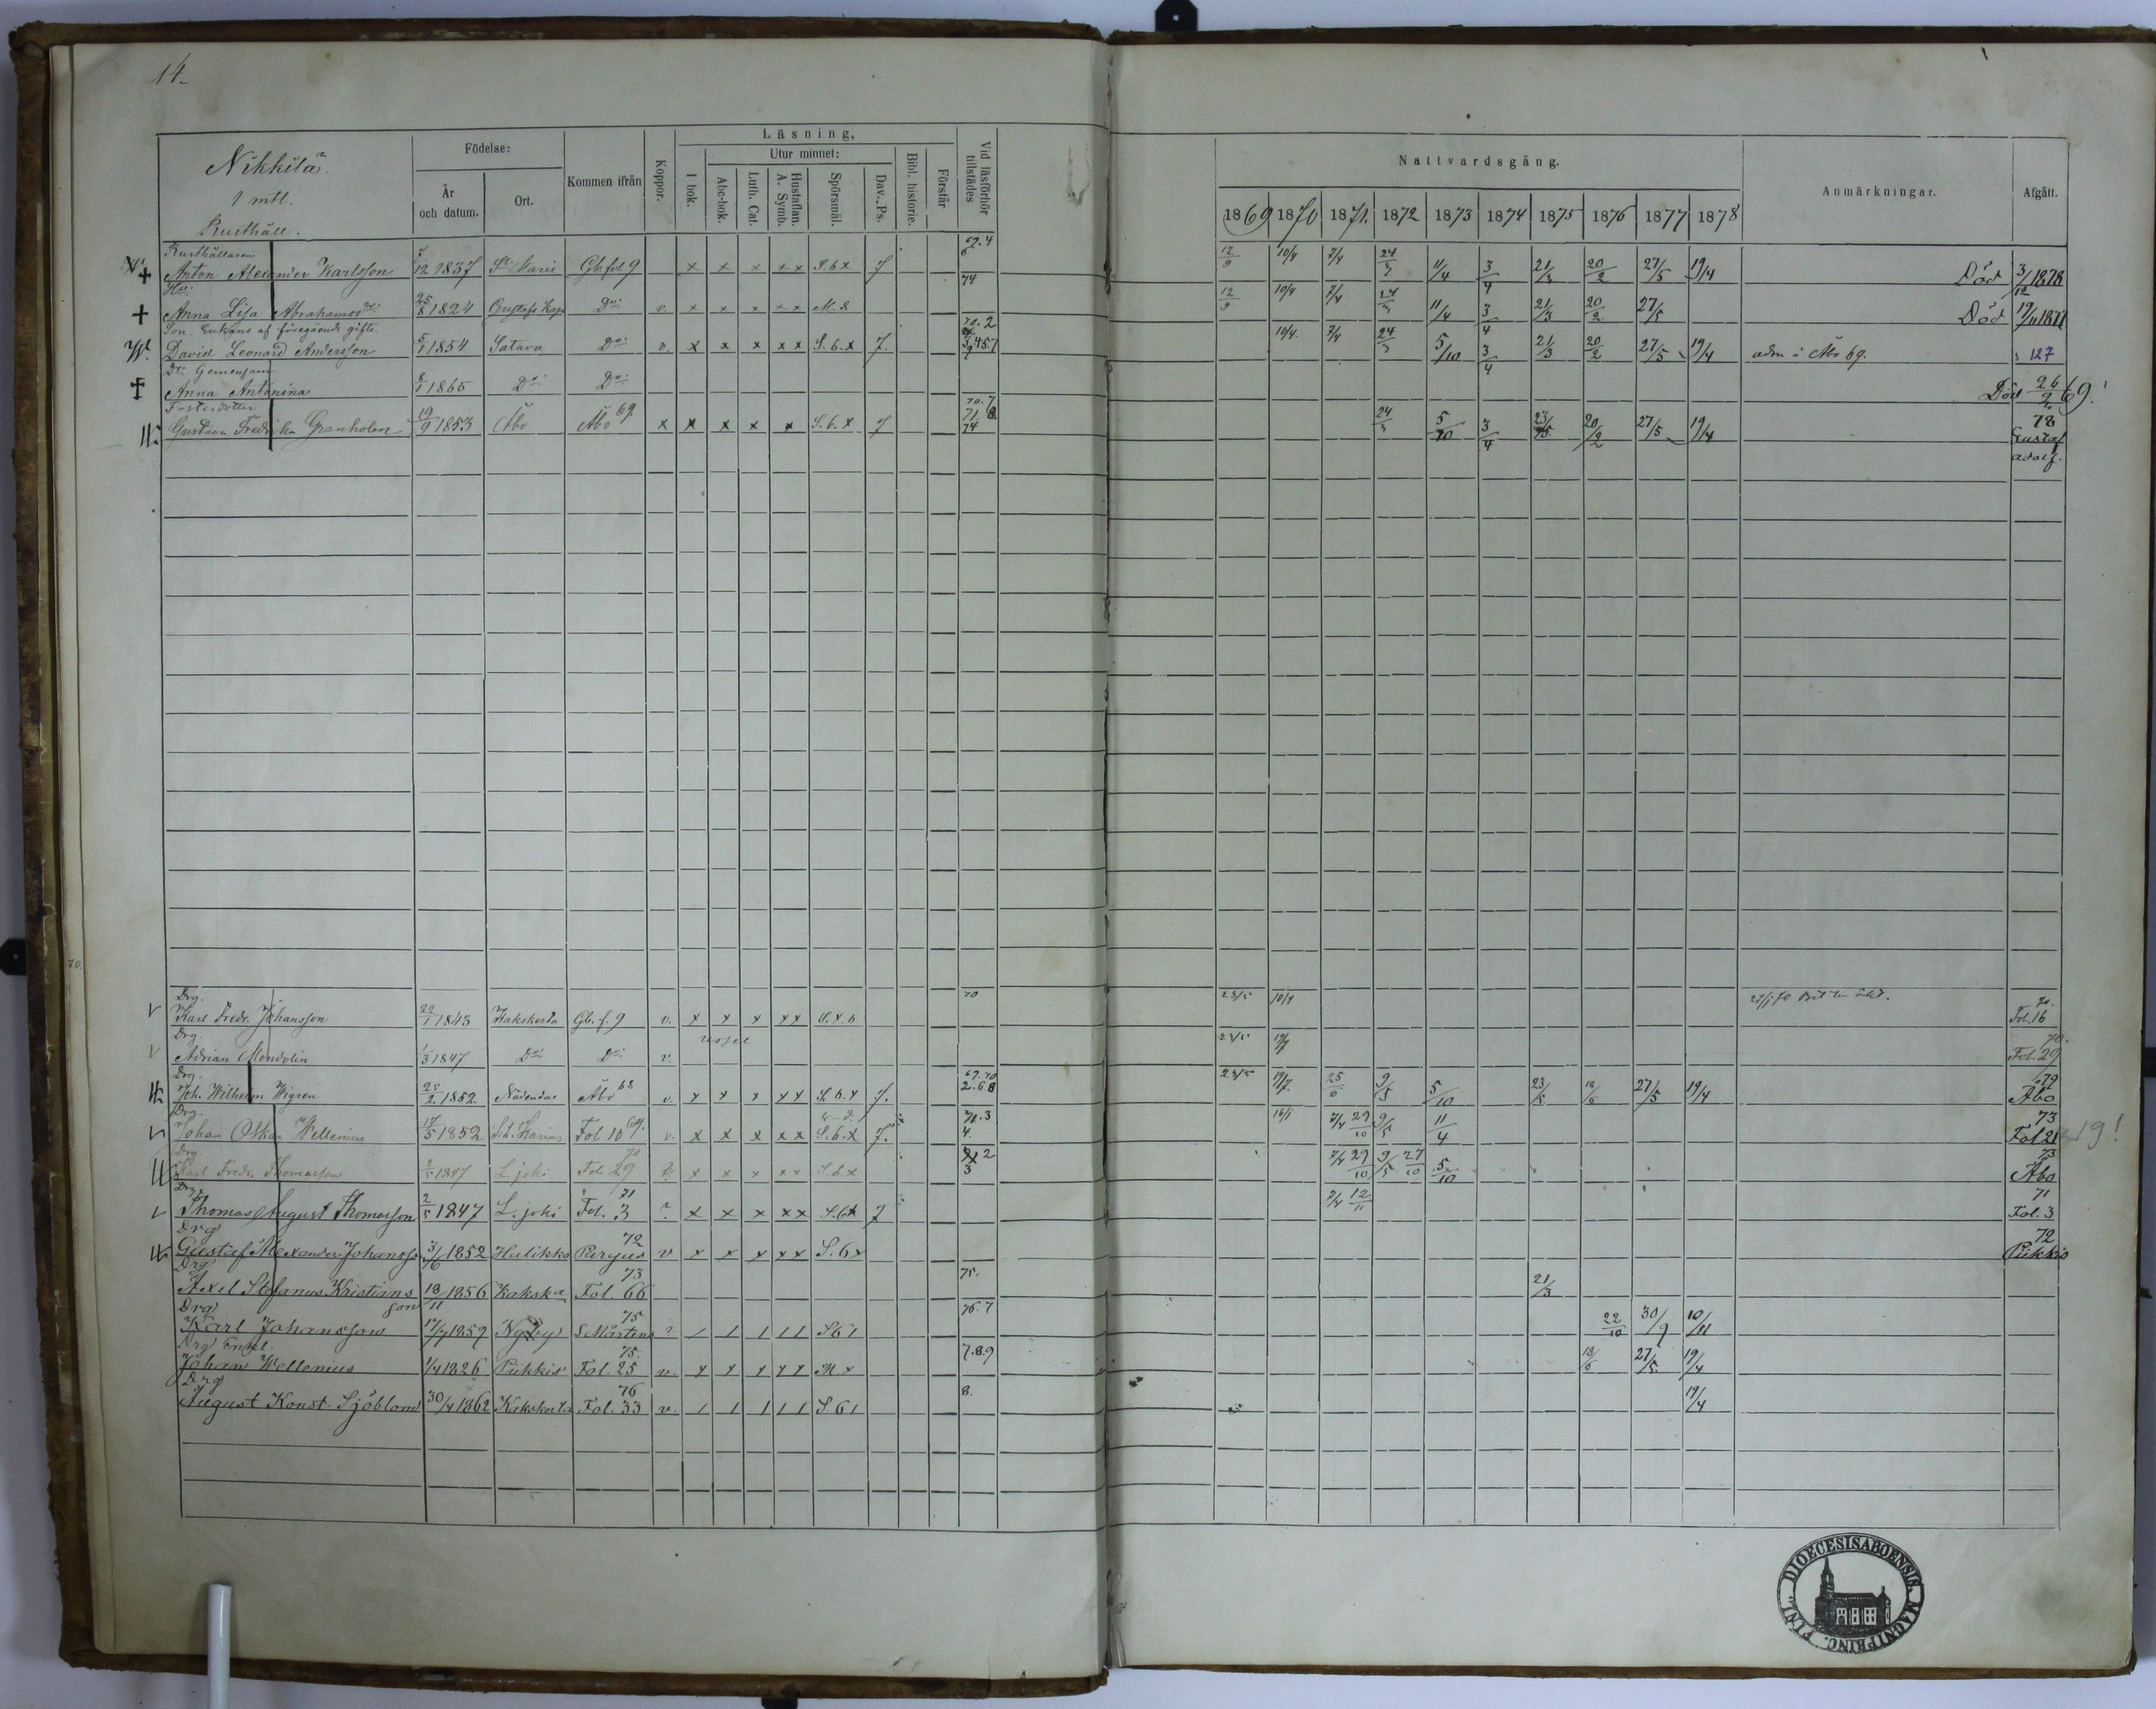 14.
Nikkilä.
1 mtl.
Rusthåll.
Födelse:
År och datum.
Ort.
Kommen ifrån
Koppor.
Läsning,
I bok.
Utur minnet:
Abc-bok.
Luth. Cat.
Hustaflan. A. Symb.
Spörsmål.
Dav. Ps.
Bibl. historie.
Förstår
Vid läsförhör tillstädes
Nattvardsgång.
1869 1870 1871. 1872 1873 1874 1875 1876 1877 1878
Anmärkningar.
Afgått.
Rusthållaren
Anton Alexander Karlsson 7/12 1837 St Marie Gb. fol 9 x x x x x S. b x 7 74 12/9 10/4 7/4 24/3 11/4 3/4 21/3 20/2 27/5 19/4 Död 3/12 1878
Hu:
Anna Lisa Abrahamsdr: 25/8 1824 Gustafs Kap Do: v. x x x x x M. 12/9 10/4 7/4 24/3 11/4 3/4 21/3 20/2 27/5 Död 19/11 1877
Son. Enkans af föregående gifte
David Leonard Andersson 5/1 1854 Satava Do: v. x x x x x S. b. x 7. 10/4. 7/4 24/3 5/10 3/4 21/3 20/2 27/5 19/4 adm i Åbo 69. 127
Dr. Gemensam
Anna Antonina 1865 Do: Do: Död 26/2 69!
Fosterdotter
Gustava Fredrika Granholm 19/9 1853 Åbo Åbo 69. x x x x x S. b. x 7 74 24/3 5/10 3/4 20/2 27/5 19/4 78 Gustaf Adolf.
Drg.
Karl Fredr. Johansson 1843 Kakskerta Gb. f. 9 v. x x x x x S. x. b 70 23/5 10/4 70. Fol. 16
Drg.
Adrian Mandolin 1/3 1847 Do: Do: v. ussel 23/5 70. Fol. 29
Drg.
Joh. Wilhelm Wigren 25/2 1852 Nådendal Åbo 68 v. x x x x x S. b. x 7. 69.70 2.6 8 23/5 25/6 9/5 5/10 23/5 18/6 27/5 19/4 79 Åbo
Drg.
Johan Oskar Wellenius 17/5 1852 S:t Karins Fol. 10 69. v. x x x x x S. b. x 7. 71.3 4. 7/4 29/10 9/5 11/4 73 Fol. 21 19!
Drg.
Karl Fredr. Thomasson 1847 L. joki Fol. 29 70 x x x x x S b x 3 7/4 29/10 9/5 27/10 5/10 73 Åbo
Drg.
Thomas August Thomasson 2/5 1847 L. joki Fol. 3 71 ? x x x x x S. b x 7 7/4 12/11 71 Fol. 3
Drg
Gustaf Alexander Johansson 3/6 1852 Halikko 72 v x x x x x S. b x 72 Pikkis
Drg
Axel Stefanus Kristiansson 13/11 1856 Kakska Fol. 66 73 75. 21/3
Drg
Karl Johansson 17/7 1859 Nyby S Mårtens 75 ? 1 1 1 1 1 S b 1 76.7 22/10 30/9 10/11
Drg Enkl.
Johan Wellenius 1/4 1826 Pikkis Fol. 25 75. v. x x x x x M x 7.8.9 18/6 27/5 19/4
Drg
August Konst. Sjöblom 30/4 1862 Kakskerta Fol. 33 76 v. 1 1 1 1 1 S b 1 8. 19/4
DIOECESIS ABOENSIS. MAGNI PRINC. FINL.